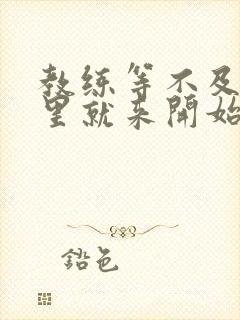 教练等不及
里就来開始
鉛色